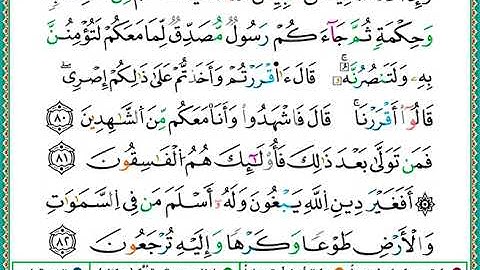 وَحِكْمَةٍ ثُمَّ جَآءَ كُمْ رَسُولٌ مُصَدِّقٌ لِمَا مَعَكُمْ لَتُؤْمِنُنَّ
بِهِۦ وَلَتَنصُرُنَّهُۥ قَالَ ءَا۬قْرَرْتُمْ وَأَخَذتُّمْ عَلَىٰ ذَٰلِكُمْ إِصْرِى
قَالُوٓا۟ أَقْرَرْنَا قَالَ فَاشْهَدُوا۟ وَأَنَا۠ مَعَكُم مِّنَ الشَّٰهِدِينَ ٨٠
فَمَن تَوَلَّىٰ بَعْدَ ذَٰلِكَ فَأُو۟لَٰٓئِكَ هُمُ الْفَٰسِقُونَ ٨١
۞ أَفَغَيْرَ دِينِ اللَّهِ يَبْغُونَ وَلَهُۥٓ أَسْلَمَ مَن فِى السَّمَٰوَٰتِ
وَالْأَرْضِ طَوْعًا وَكَرْهًا وَإِلَيْهِ تُرْجَعُونَ ٨٢